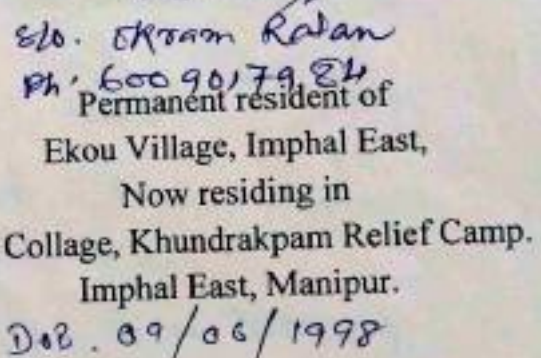 S/o. Okram Ratan
Ph: 6009017984
Permanent resident of
Ekou Village, Imphal East,
Now residing in
Collage, Khundrakpam Relief Camp.
Imphal East, Manipur.
DOB. 09/06/1998